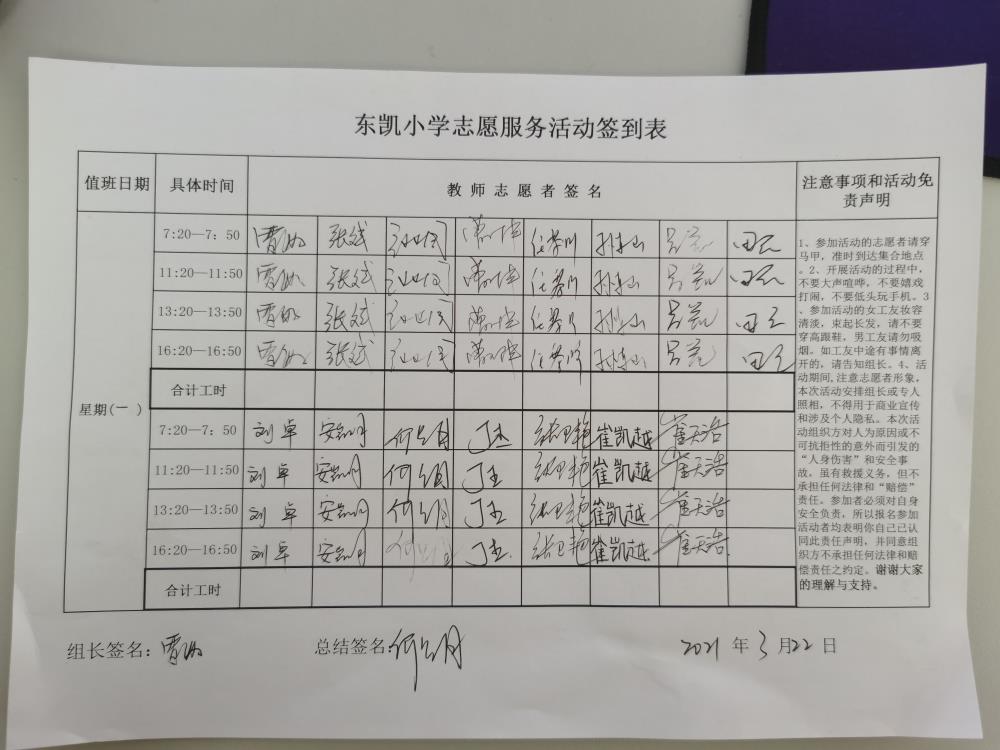 东凯小学志愿服务活动签到表
值班日期 具体时间 教师志愿者签名 注意事项和活动免责声明
星期(一)
7:20—7:50 张斌 田
11:20—11:50 张斌 田
13:20—13:50 张斌 田
16:20—16:50 张斌 田
合计工时
7:20—7:50 刘卓 安凯月 何 丁杰 张卫艳 崔凯越 崔天浩
11:20—11:50 刘卓 安凯月 何 丁杰 张卫艳 崔凯越 崔天浩
13:20—13:50 刘卓 安凯月 何 丁杰 张卫艳 崔凯越 崔天浩
16:20—16:50 刘卓 安凯月 何 丁杰 张卫艳 崔凯越 崔天浩
合计工时
1、参加活动的志愿者请穿
马甲，准时到达集合地点
。2、开展活动的过程中，
不要大声喧哗，不要嬉戏
打闹，不要低头玩手机。3
、参加活动的女工友妆容
清淡，束起长发，请不要
穿高跟鞋，男工友请勿吸
烟。如工友中途有事情离
开的，请告知组长。4、活
动期间,注意志愿者形象，
本次活动安排组长或专人
照相，不得用于商业宣传
和涉及个人隐私。本次活
动组织方对人为原因或不
可抗拒性的意外而引发的
“人身伤害”和安全事
故，虽有救援义务，但不
承担任何法律和“赔偿”
责任。参加者必须对自身
安全负责，所以报名参加
活动者均表明你自己已认
同此责任声明，并同意组
织方不承担任何法律和赔
偿责任之约定。谢谢大家
的理解与支持。
组长签名： 总结签名:何 2021 年 3 月 22 日